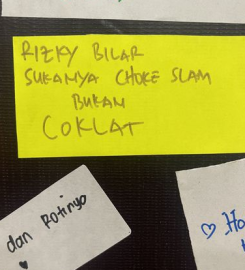 RIZKY BILAR
SUKANYA CHOKE SLAM
BUKAN
COKLAT
dan Rotinya
♥
♡ Ho